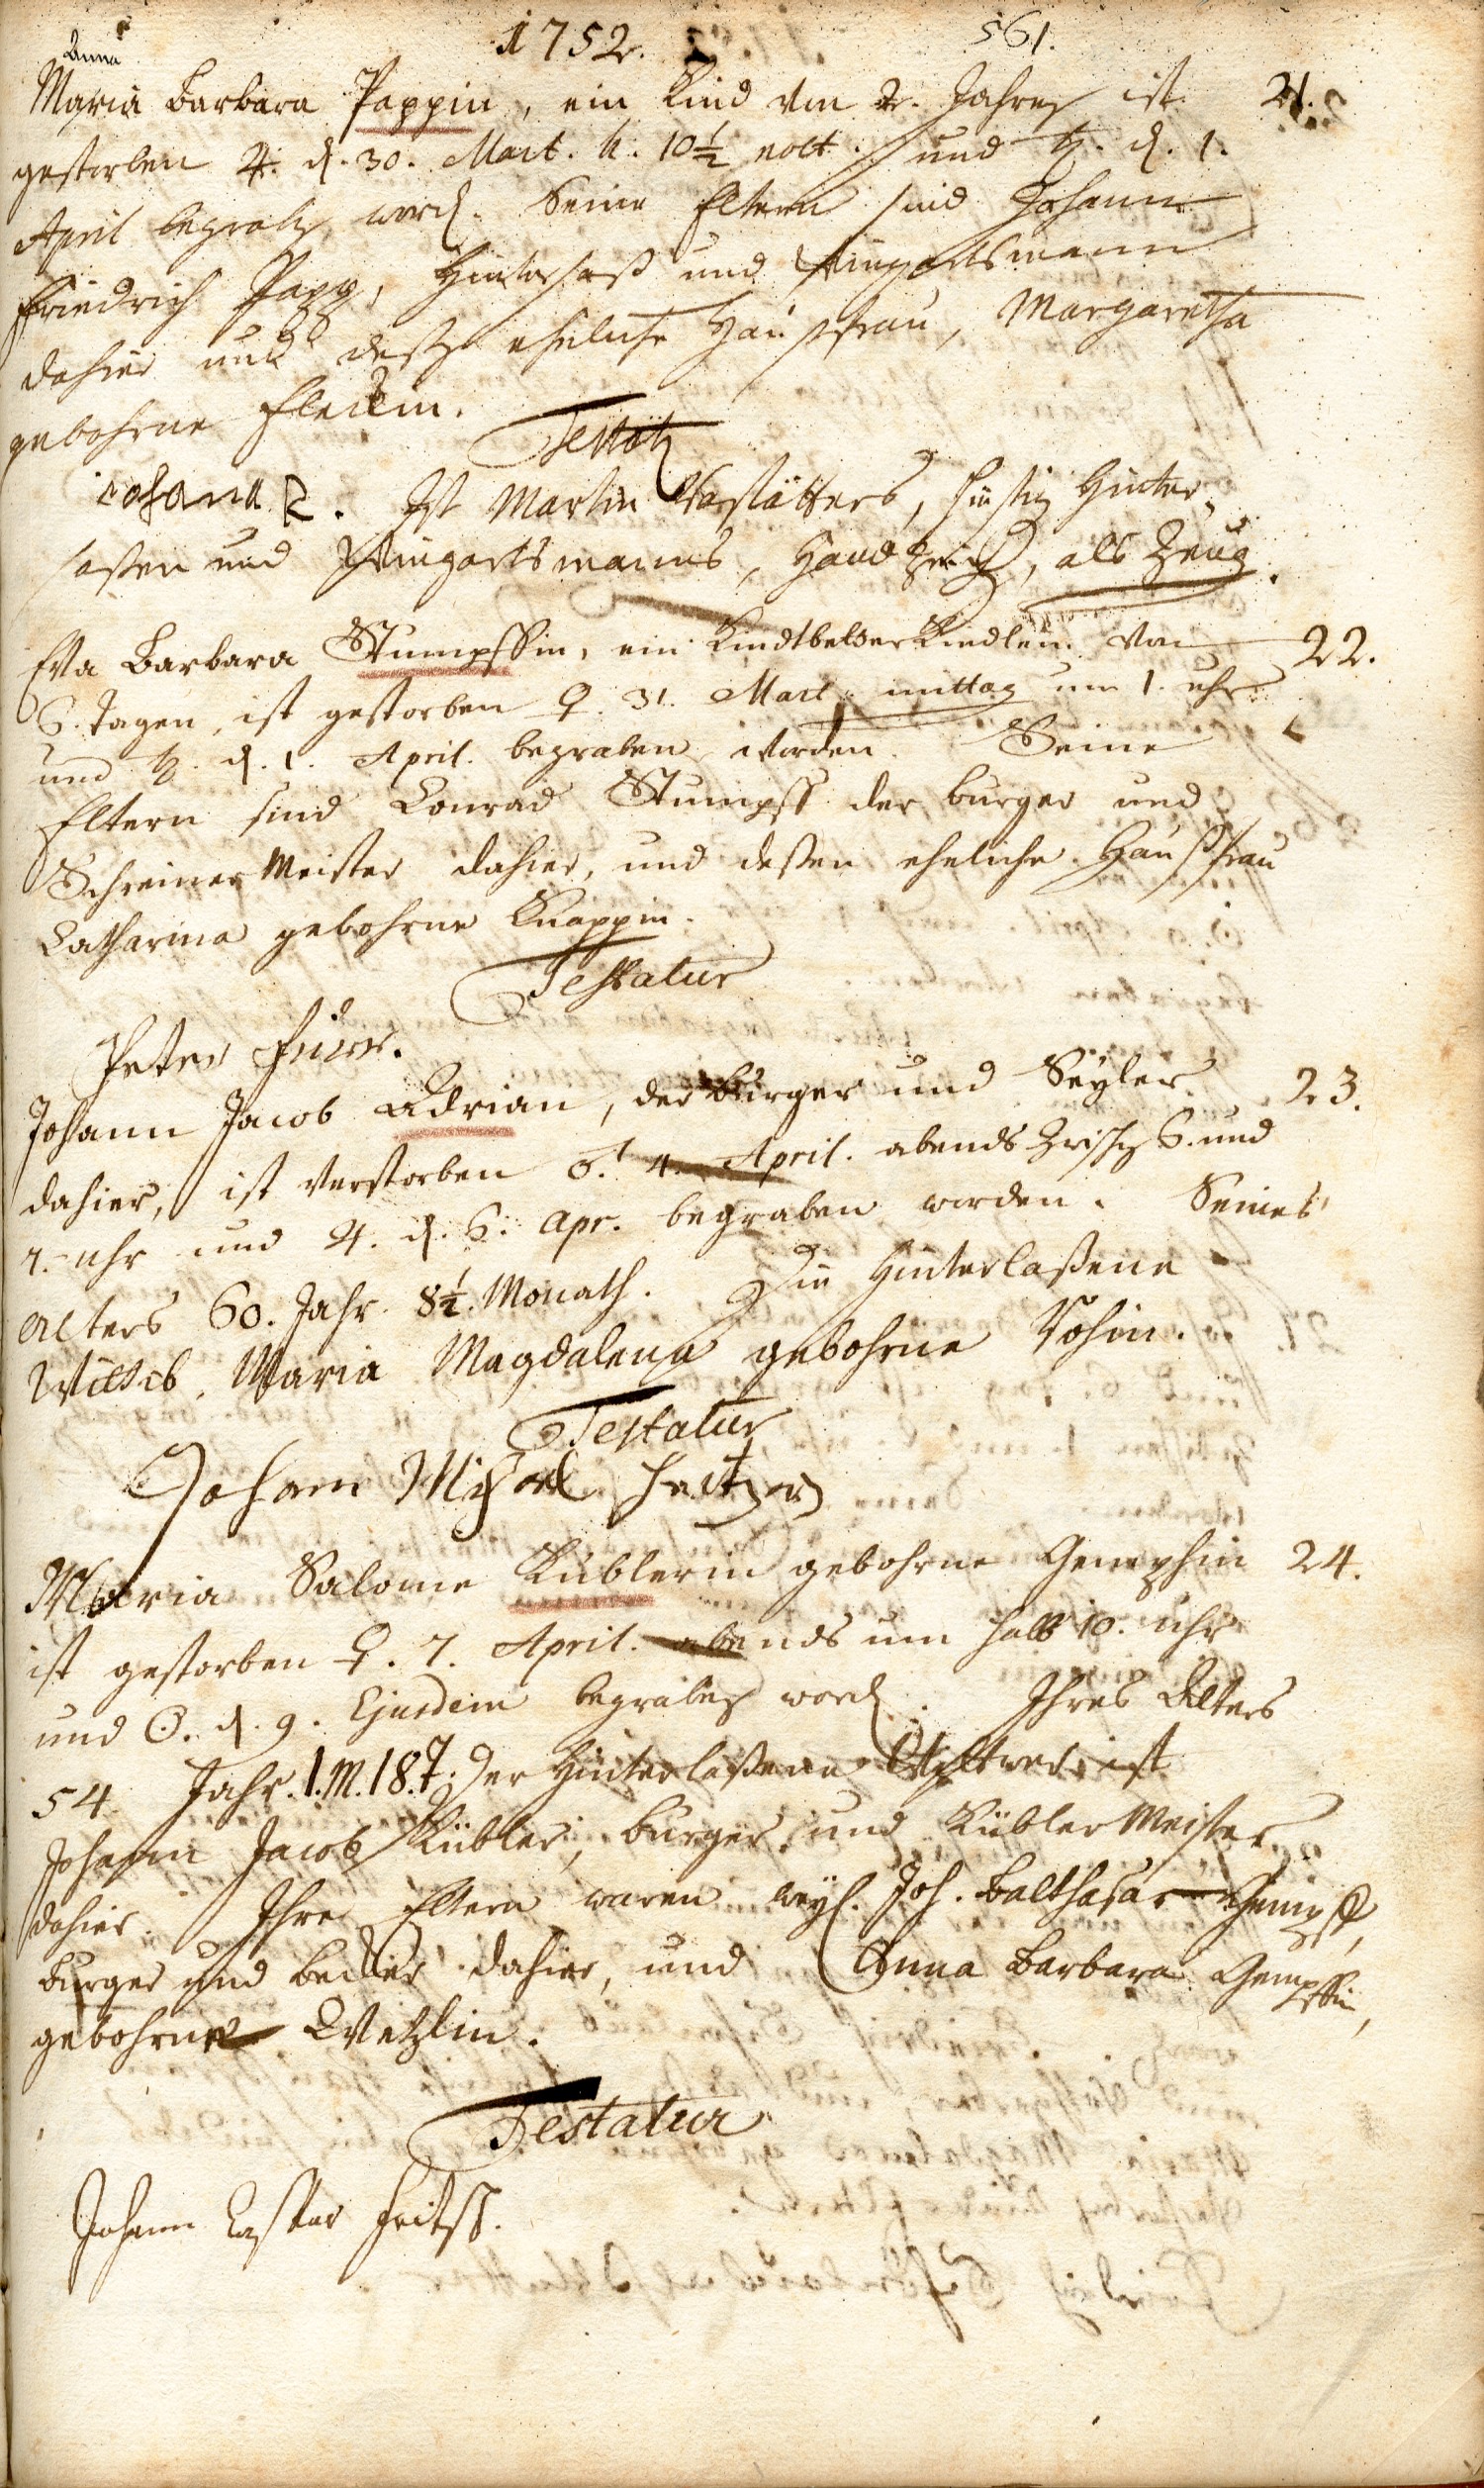 1752. 561.
Anna
Maria Barbara Pappin, ein Kind von 2. Jahren ist 21.
gestorben ♃. d. 30. Mart. h. 10½ noct. und ♄. d. 1.
April begrab. word. Seine Eltern sind Johann
Friedrich Papp, Hintersaß und Weingartsmann
dahier und deßen eheliche Haußfrau, Margaretha
gebohrne
Testat
iohana R. Ist Martin, hiesig Hinter-
saßen und Weingartsmanns, Handzeich, als Zeug.
Eva Barbara Stumpffin, ein Kindtbetter Kindlein von 22.
6. Tagen, ist gestorben ♀. 31. Mart. mittag um 1. uhr
und ♄. d. 1. April. begraben worden. Seine
Eltern sind Conrad Stumpff der burger und
Schreiner Meister dahier, und deßen eheliche Haußfrau
Catharina gebohrne Knappin.
Testatur
Peter
Johann Jacob Adrian, der burger und Seyler 23.
dahier, ist verstorben ♂. 4. April. abends zwisch. 6. und
7. uhr und ♃. d. 6. Apr. begraben worden. Seines
Alters 60. Jahr. 8½. Monath. Die Hinterlaßene
Wittib, Maria Magdalena gebohrne
Testatur
Johann Michael
Maria Salome Küblerin gebohrne Gemphin 24.
ist gestorben ♀. 7. April. abends um halb 10. uhr
und ☉. d. 9. Ejusdem begraben word. Ihres Alters
54 Jahr. 1. M. 18. T. Der Hinterlaßene Wittwer ist
Johann Jacob Kübler, burger und Kübler Meister
dahier. Ihre Eltern waren weyl. Joh. Balthasar Gempff,
burger und becker dahier, und Anna Barbara Gempffin,
gebohrne Wetzlin.
Testatur
Johann Caspar Fritsch.